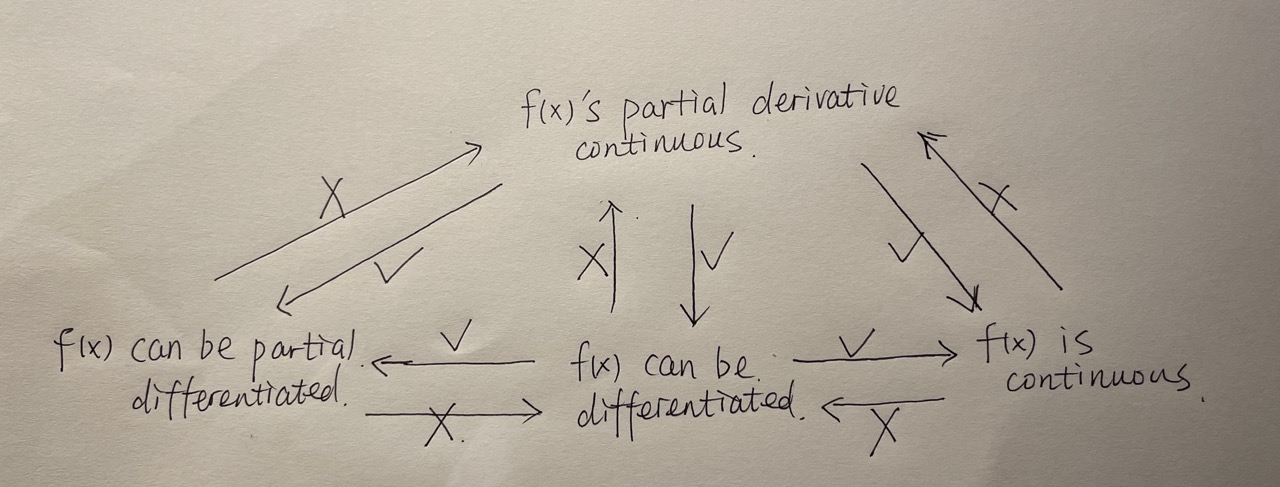 f(x)'s partial derivative
continuous.
X
X
X
✓
✓
✓
f(x) can be partial
differentiated.
✓
X.
f(x) can be
differentiated.
✓
X
f(x) is
continuous.